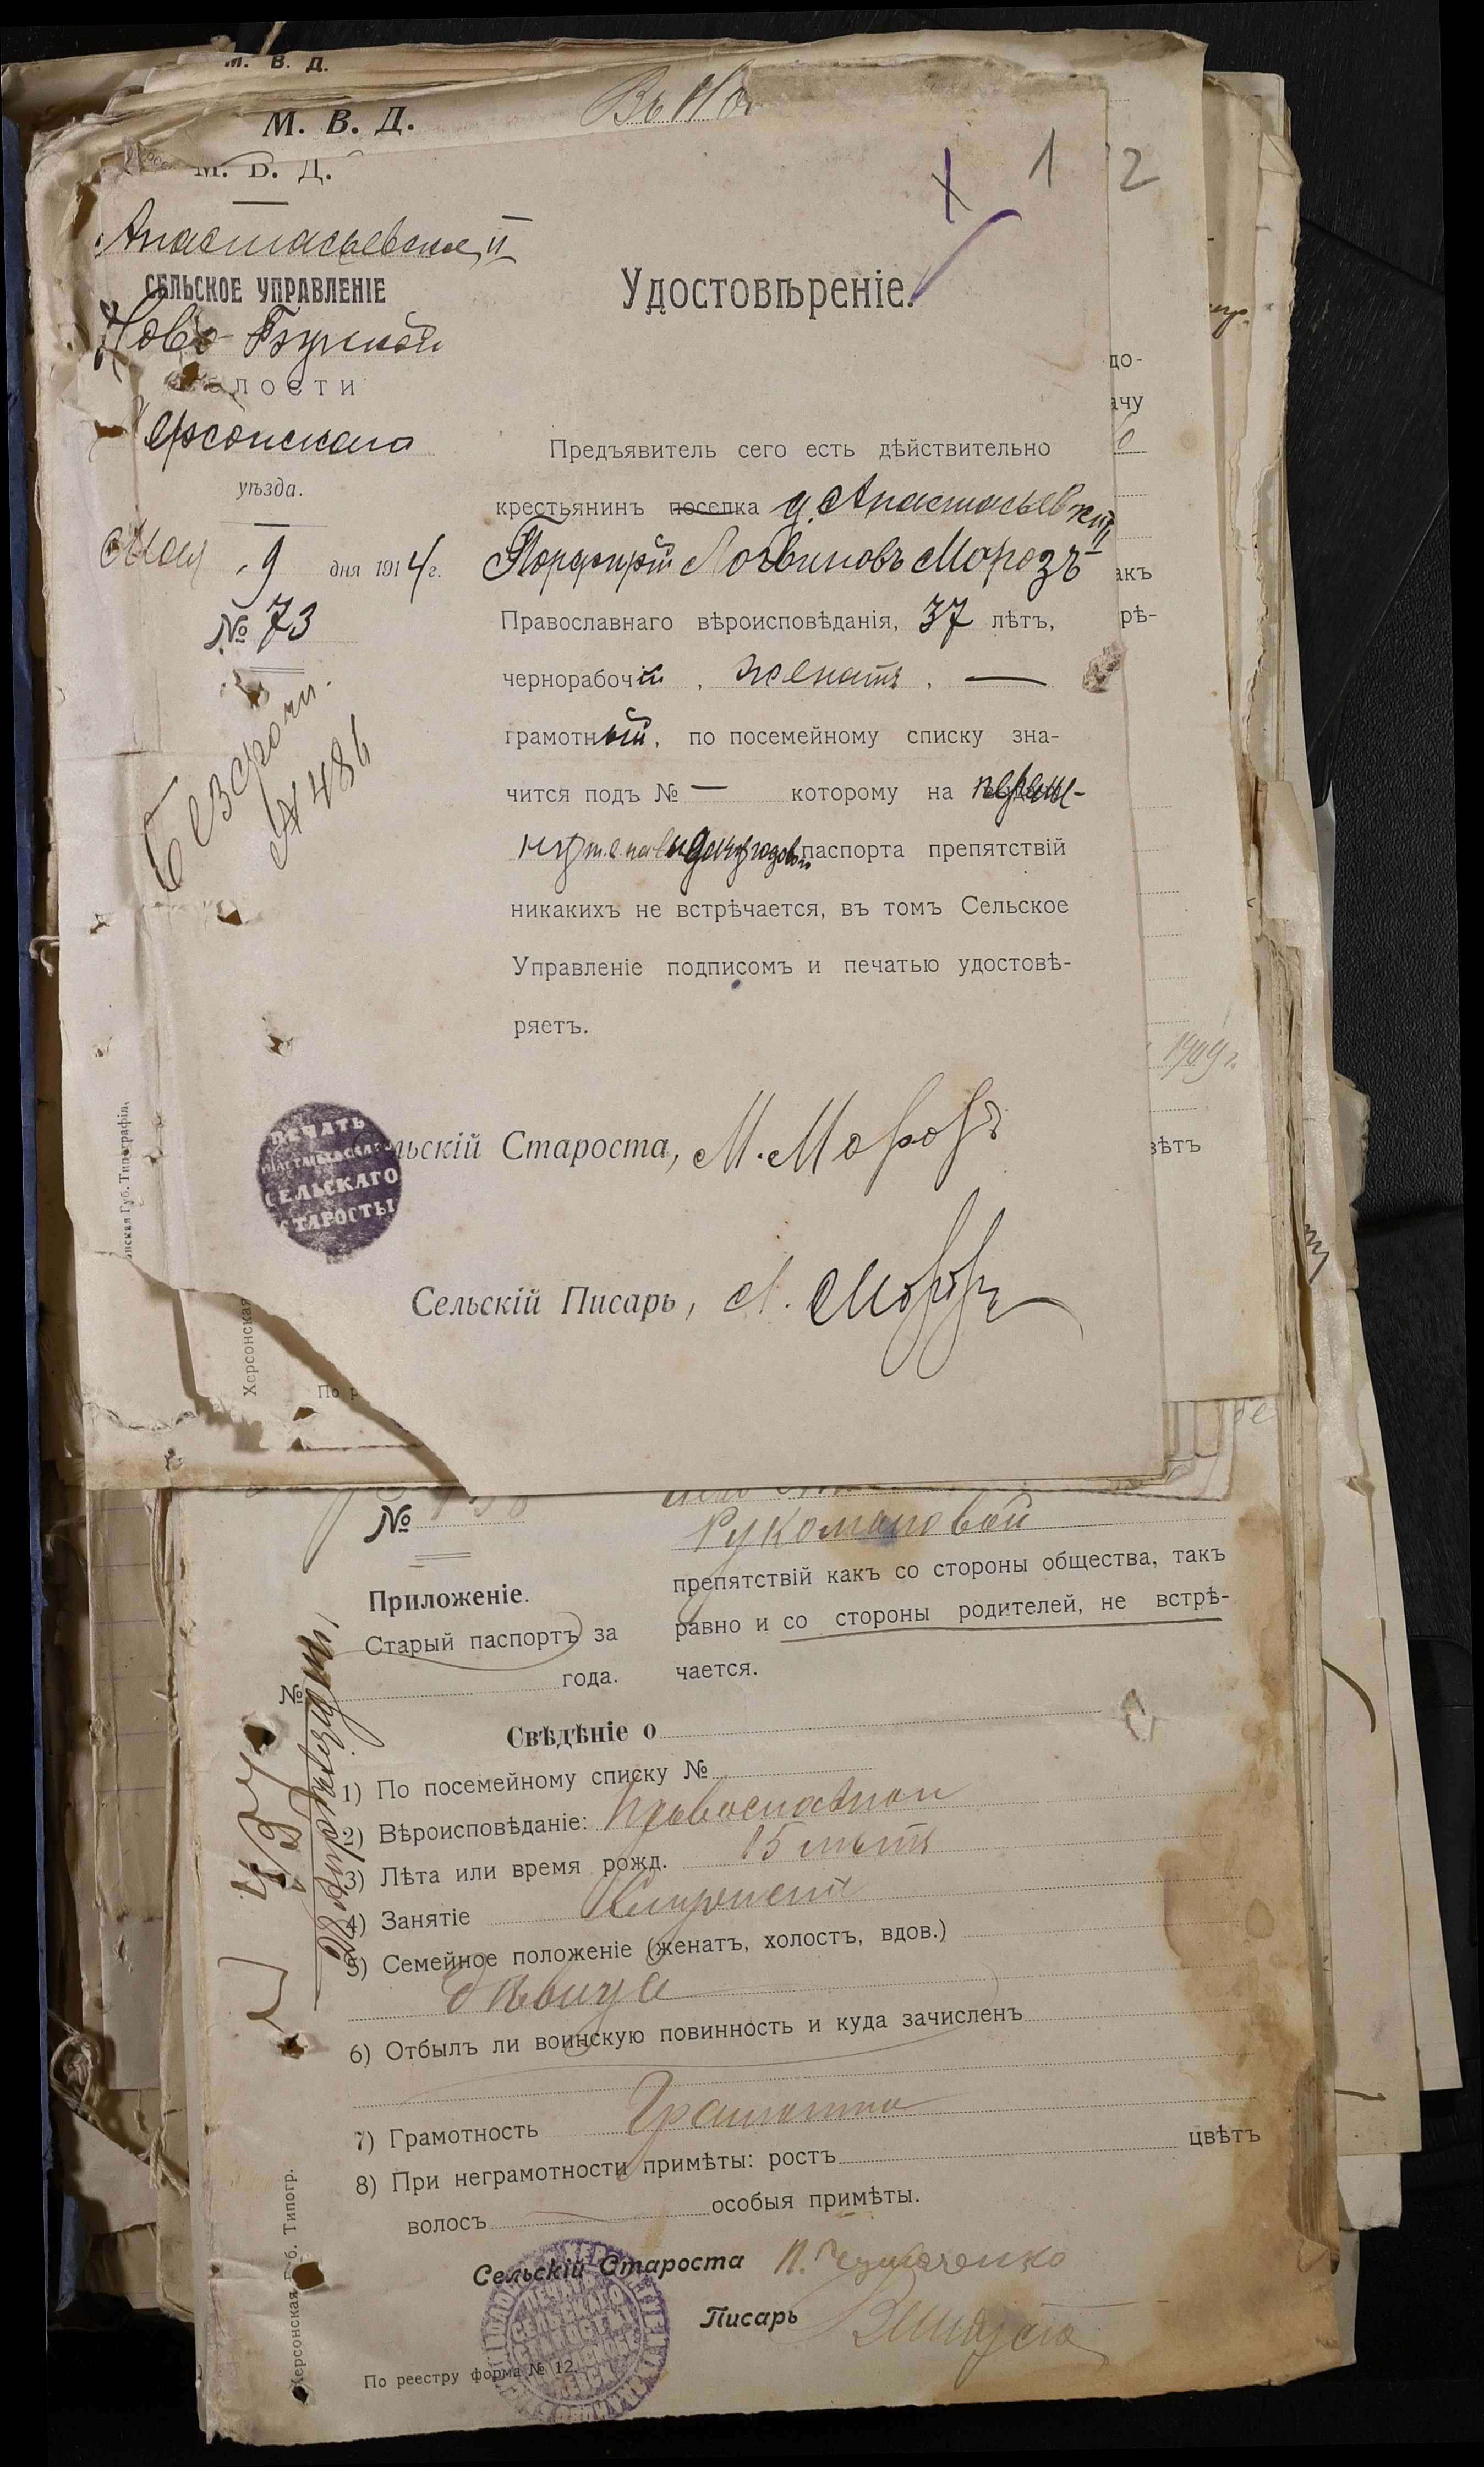 М. В. Д.
М. В. Д.
Въ
М. В. Д.
1
2
Анастасьевское II
СЕЛЬСКОЕ УПРАВЛЕНІЕ
Ново-Бугской
волости
Херсонскаго
уѣзда.
Мая 9 дня 1914 г.
№ 73
Безсрочн.
№ 486
Удостовѣреніе.
Предъявитель сего есть дѣйствительно
крестьянинъ поселка д. Анастасьевки II
Порфирій Логвиновъ Морозъ
Православнаго вѣроисповѣданія, 37 лѣтъ,
чернорабочій, женатъ, —
грамотный, по посемейному списку зна-
чится подъ № — которому на
паспорта препятствій
никакихъ не встрѣчается, въ томъ Сельское
Управленіе подписомъ и печатью удостовѣ-
ряетъ.
Сельскій Староста, М. Морозъ
ПЕЧАТЬ
СЕЛЬСКАГО
СТАРОСТЫ
Сельскій Писарь, Морозъ
нская Губ. Типографія.
Херсонская
По р
до-
ачу
акъ
рѣ-
1909 г.
вѣтъ
№
препятствій какъ со стороны общества, такъ
равно и со стороны родителей, не встрѣ-
чается.
Приложеніе.
Старый паспортъ за
года.
№
Свѣдѣніе о
1) По посемейному списку №
2) Вѣроисповѣданіе: Православной
3) Лѣта или время рожд. 15 лѣтъ
4) Занятіе
5) Семейное положеніе (женатъ, холостъ, вдов.)
дѣвица
6) Отбылъ ли воинскую повинность и куда зачисленъ
7) Грамотность Грамотна
8) При неграмотности примѣты: ростъ цвѣтъ
волосъ особыя примѣты.
Сельскій Староста
Писарь
По реестру форма № 12.
Херсонская Губ. Типогр.